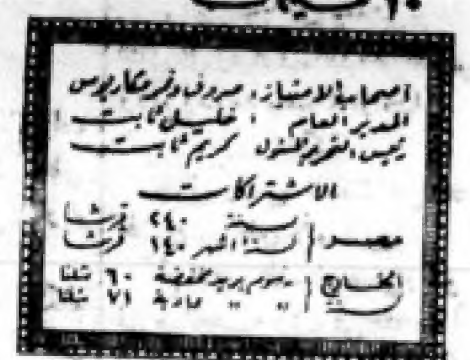 ١٠ مليمات
أصحاب الامتياز : صروف ونمر ومكاريوس
المدير العام : خليل ثابت
رئيس التحرير المسئول كريم ثابت
الاشتراكات
مصر لسنة ٢٤٠ قرشا
لستة اشهر ١٤٠ قرشا
الخارج لسنة برسوم بريد مخفضة ٦٠ شلنا
" " عادية ٧١ شلنا